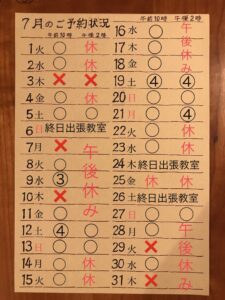 7月のご予約状況
午前10時 午後2時
1 火 ○ 休
2 水 ○ 休
3 木 × ×
4 金 ○ 休
5 土 ○ ○
6 日 終日出張教室
7 月 ×
8 火 ○
9 水 ③
10 木 ×
11 金 ○
午後休み
12 土 ④ ○
13 日 ○ ○
14 月 ○ 休
15 火 ○ 休
午前10時 午後2時
16 水 ○
17 木 ○
18 金 ○
午後休み
19 土 ④ ④
20 日 ○ ○
21 月 ○ ④
22 火 ○ 休
23 水 ○ 休
24 木 終日出張教室
25 金 休 休
26 土 終日出張教室
27 日 ○ ○
28 月 ○
29 火 ×
30 水 ○
31 木 ×
午後休み